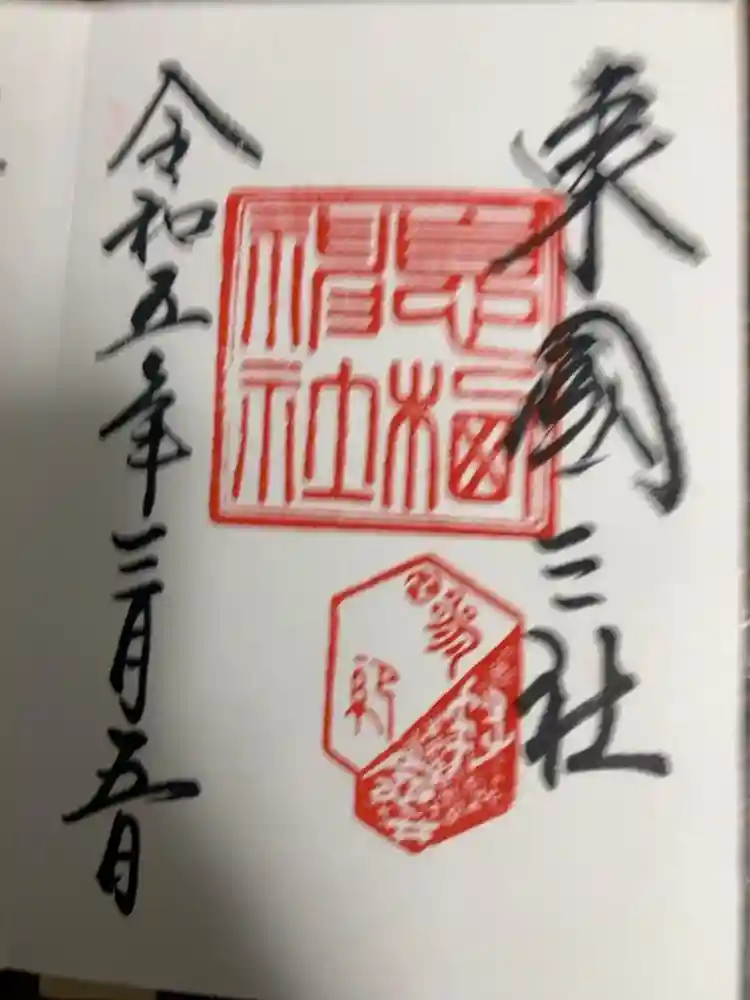 東國三社
息栖
神社
令和五年三月五日